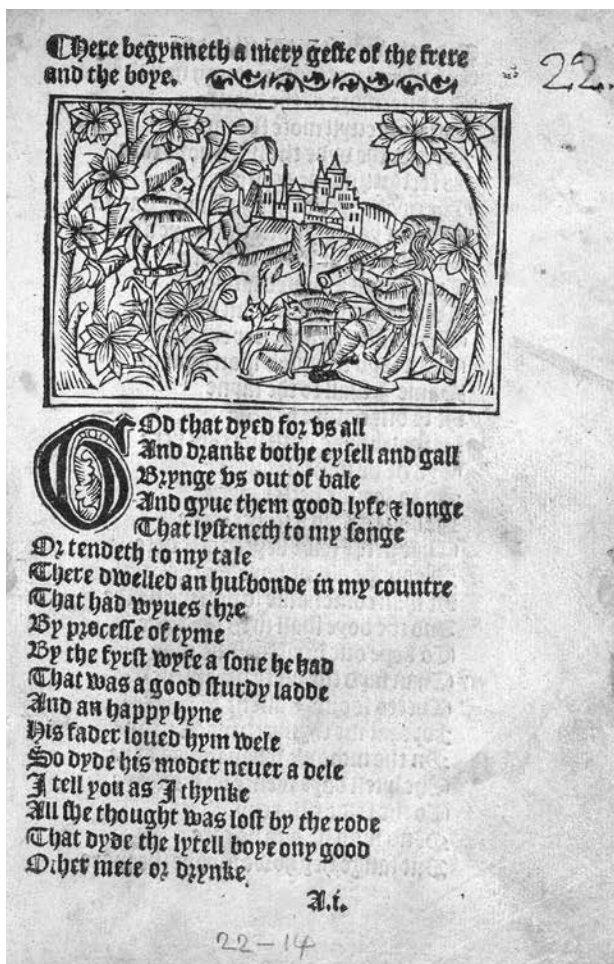 Here begynneth a mery geste of the frere
and the boye.
22.
God that dyed for vs all
And dranke bothe eysell and gall
Brynge vs out of bale
And gyue them good lyfe & longe
That lysteneth to my songe
Or tendeth to my tale
There dwelled an husbonde in my countre
That had wyues thre
By processe of tyme
By the fyrst wyfe a sone he had
That was a good sturdy ladde
And an happy hyne
His fader loued hym wele
So dyde his moder neuer a dele
I tell you as I thynke
All she thought was lost by the rode
That dyde the lytell boye ony good
Other mete or drynke
A.i.
22-14